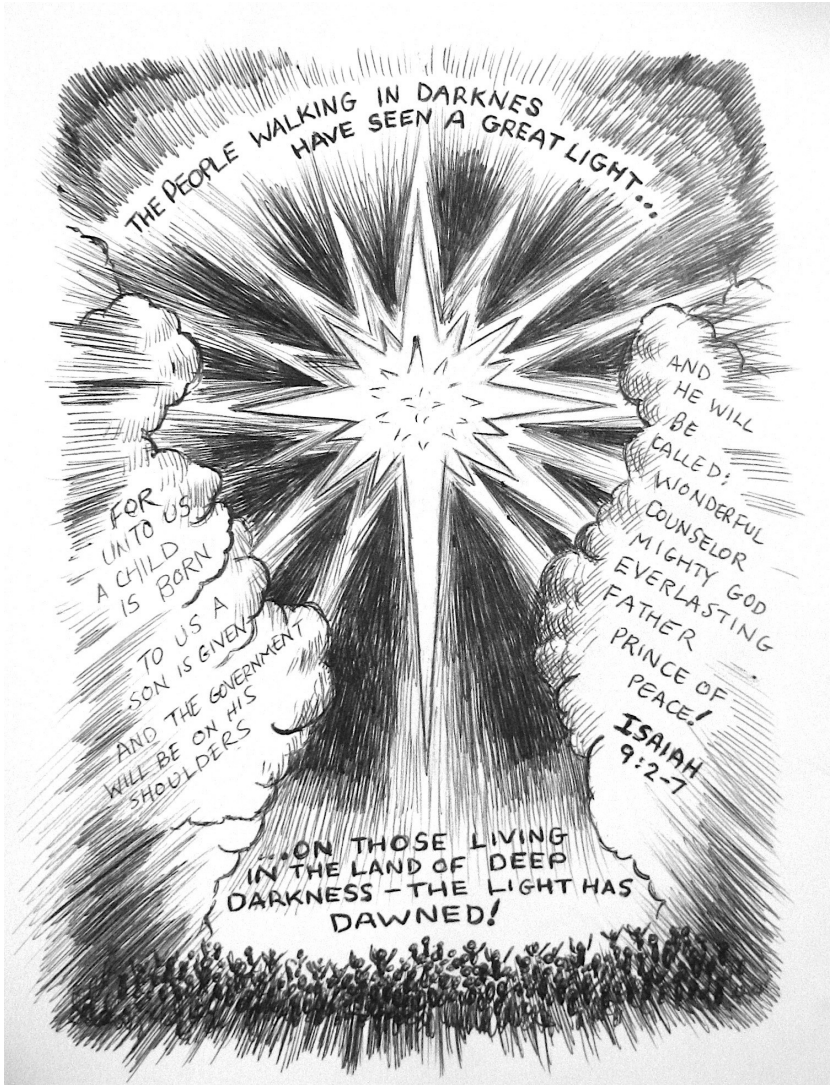 THE PEOPLE WALKING IN DARKNES
HAVE SEEN A GREAT LIGHT...
FOR
UNTO US
A CHILD
IS BORN
TO US A
SON IS GIVEN
AND THE GOVERNMENT
WILL BE ON HIS
SHOULDERS
AND
HE WILL
BE
CALLED;
WONDERFUL
COUNSELOR
MIGHTY GOD
EVERLASTING
FATHER
PRINCE OF
PEACE!
ISAIAH
9:2-7
...ON THOSE LIVING
IN THE LAND OF DEEP
DARKNESS - THE LIGHT HAS
DAWNED!